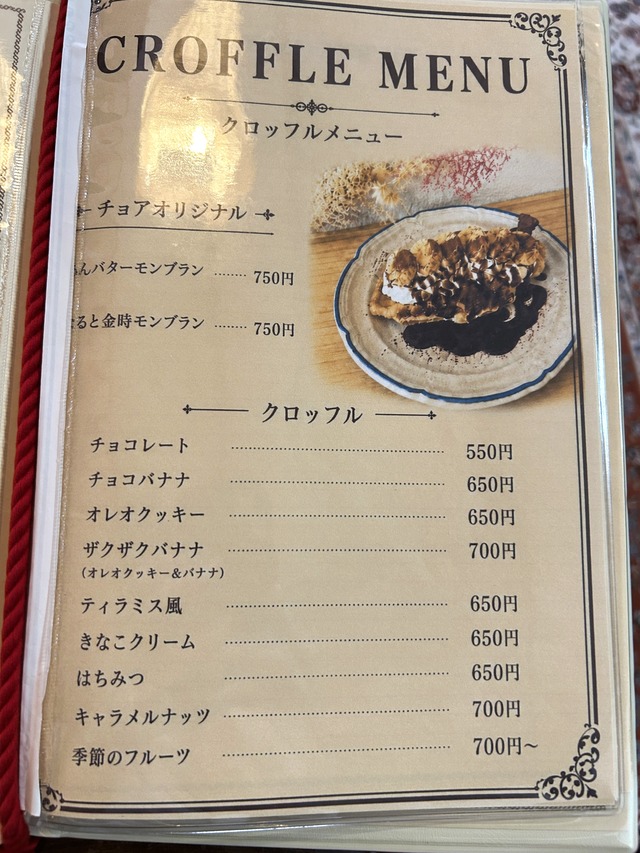 CROFFLE MENU
クロッフルメニュー
チョアオリジナル
んバターモンブラン ........ 750円
ると金時モンブラン ........ 750円
クロッフル
チョコレート 550円
チョコバナナ 650円
オレオクッキー 650円
ザクザクバナナ 700円
(オレオクッキー&バナナ)
ティラミス風 650円
きなこクリーム 650円
はちみつ 650円
キャラメルナッツ 700円
季節のフルーツ 700円〜